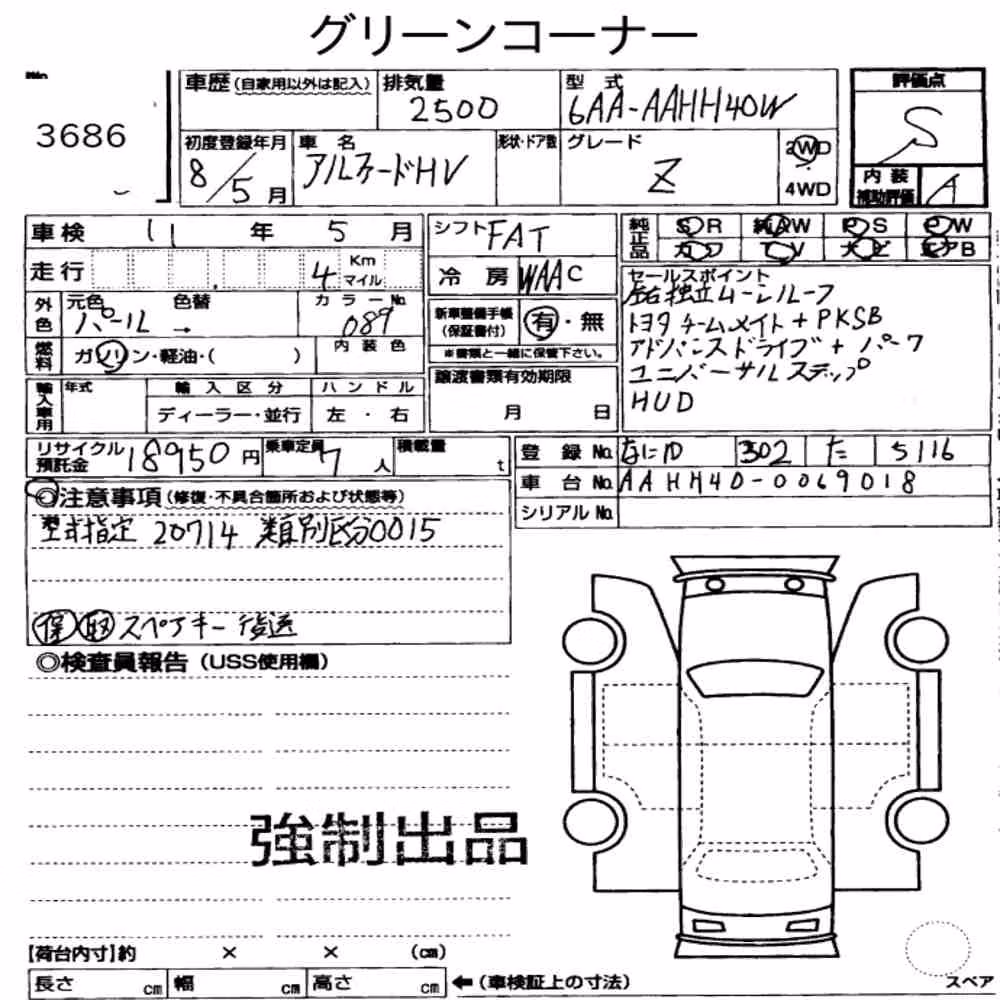 グリーンコーナー
No.
3686
車歴(自家用以外は記入) 排気量 2500 型式 6AA-AAHH40W
初度登録年月 8/5月 車名 アルファードHV 形状・ドア数 グレード Z 2WD 4WD
評価点 S
内装補助評価 A
車検 11年 5月
走行 4 Km マイル
外色 元色 パール 色替 → カラーNo. 089
燃料 ガソリン・軽油・( ) 内装色
輸入車用 年式 輸入区分 ハンドル
ディーラー・並行 左・右
シフト FAT
冷房 WAAC
新車整備手帳(保証書付) 有・無
※書類と一緒に保管下さい。
譲渡書類有効期限
月 日
純正品 SR 純AW PS PW
カワ TV ナビ エアB
セールスポイント
左右独立ムーンルーフ
トヨタチームメイト+PKSB
アドバンスドライブ+パーク
ユニバーサルステップ
HUD
リサイクル預託金 18950円 乗車定員 7人 積載量 t
登録No. なにわ 302 た 5116
車台No. AAHH40-0069018
シリアルNo.
◎注意事項(修復・不具合箇所および状態等)
型式指定 20714 類別区分0015
保 取 スペアキー後送
◎検査員報告(USS使用欄)
強制出品
【荷台内寸】約 × × (cm)
長さ cm 幅 cm 高さ cm ←(車検証上の寸法)
スペア